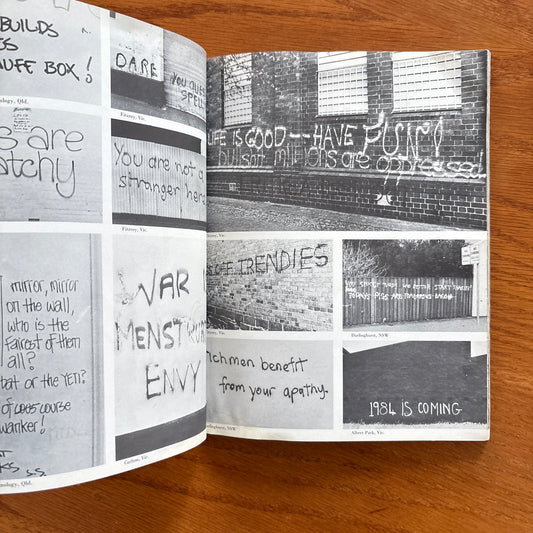 BUILDS
BOX !
nology, Qld.
DARE
YOU
SPELL
Fitzroy, Vic.
are
atchy
You are not a
stranger here
Fitzroy, Vic.
mirror, mirror
on the wall,
who is the
fairest of them
all?
bat or the YETI?
of course
wanker!
S.S.
nology, Qld.
WAR
MENSTRU
ENVY
Carlton, Vic.
LIFE IS GOOD -- HAVE FUN!
bullshit millions are oppressed
Fitzroy, Vic.
OFF TRENDIES
Fitzroy, Vic.
WE BETTER START
TODAYS PIGS ARE TOMORROWS BACON
Darlinghurst, NSW
richmen benefit
from your apathy.
Darlinghurst, NSW
1984 IS COMING
Albert Park, Vic.